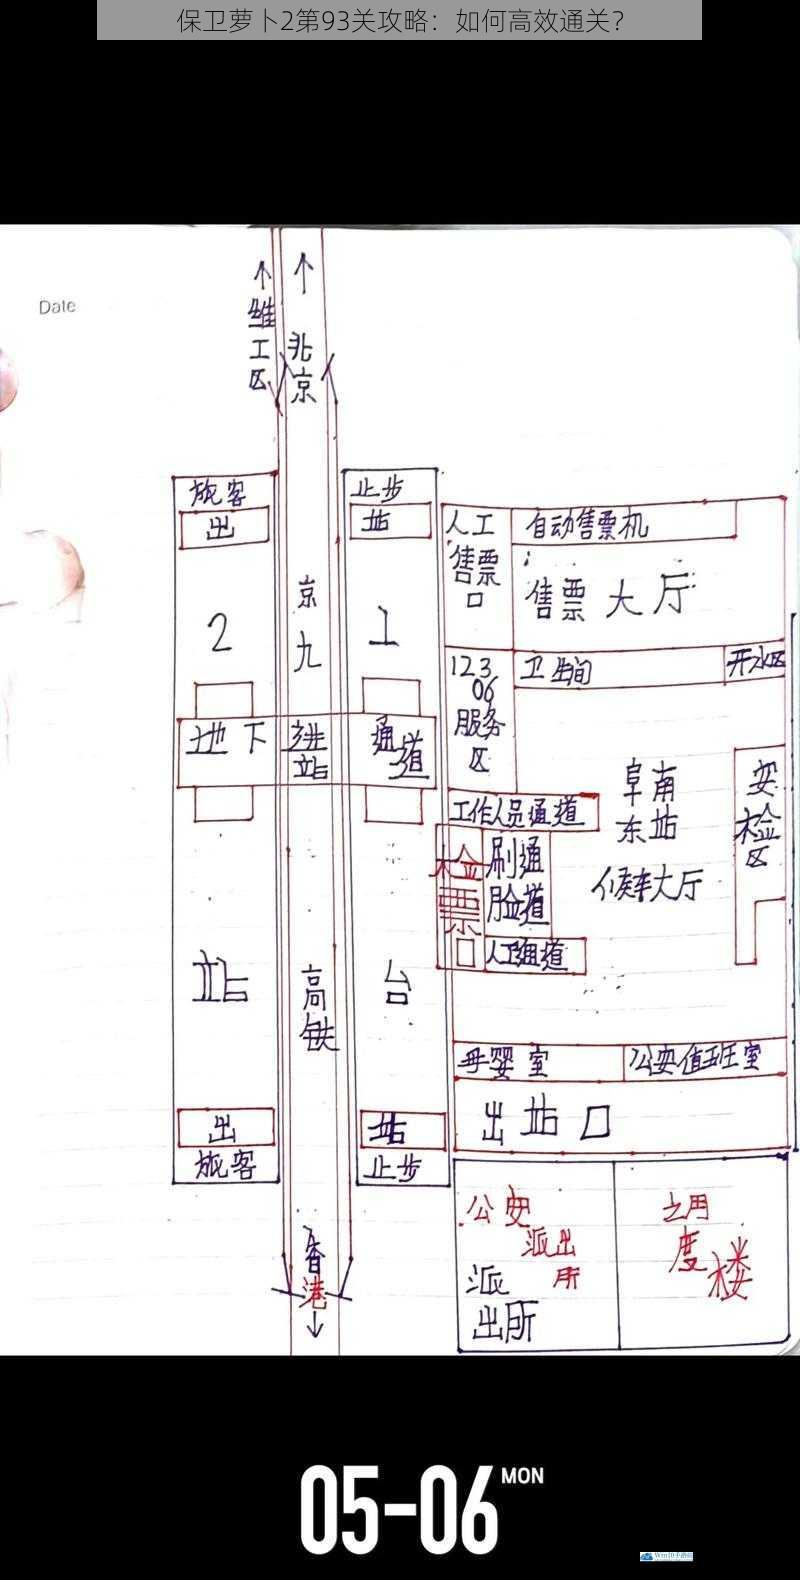 保卫萝卜2第93关攻略：如何高效通关？
Date
维工区
北京
旅客
止步
出
站
人工
售票
口
自动售票机
售票大厅
2
京九
1
123
06
服务
区
卫生间
开水区
地下
进站
通道
阜南
东站
候车大厅
安检区
工作人员通道
检票口
刷通
脸道
人工通道
站
高铁
台
母婴室
公安值班室
出站口
出
站
旅客
止步
公安
派出
所
派
出所
度楼
香港
05-06
MON